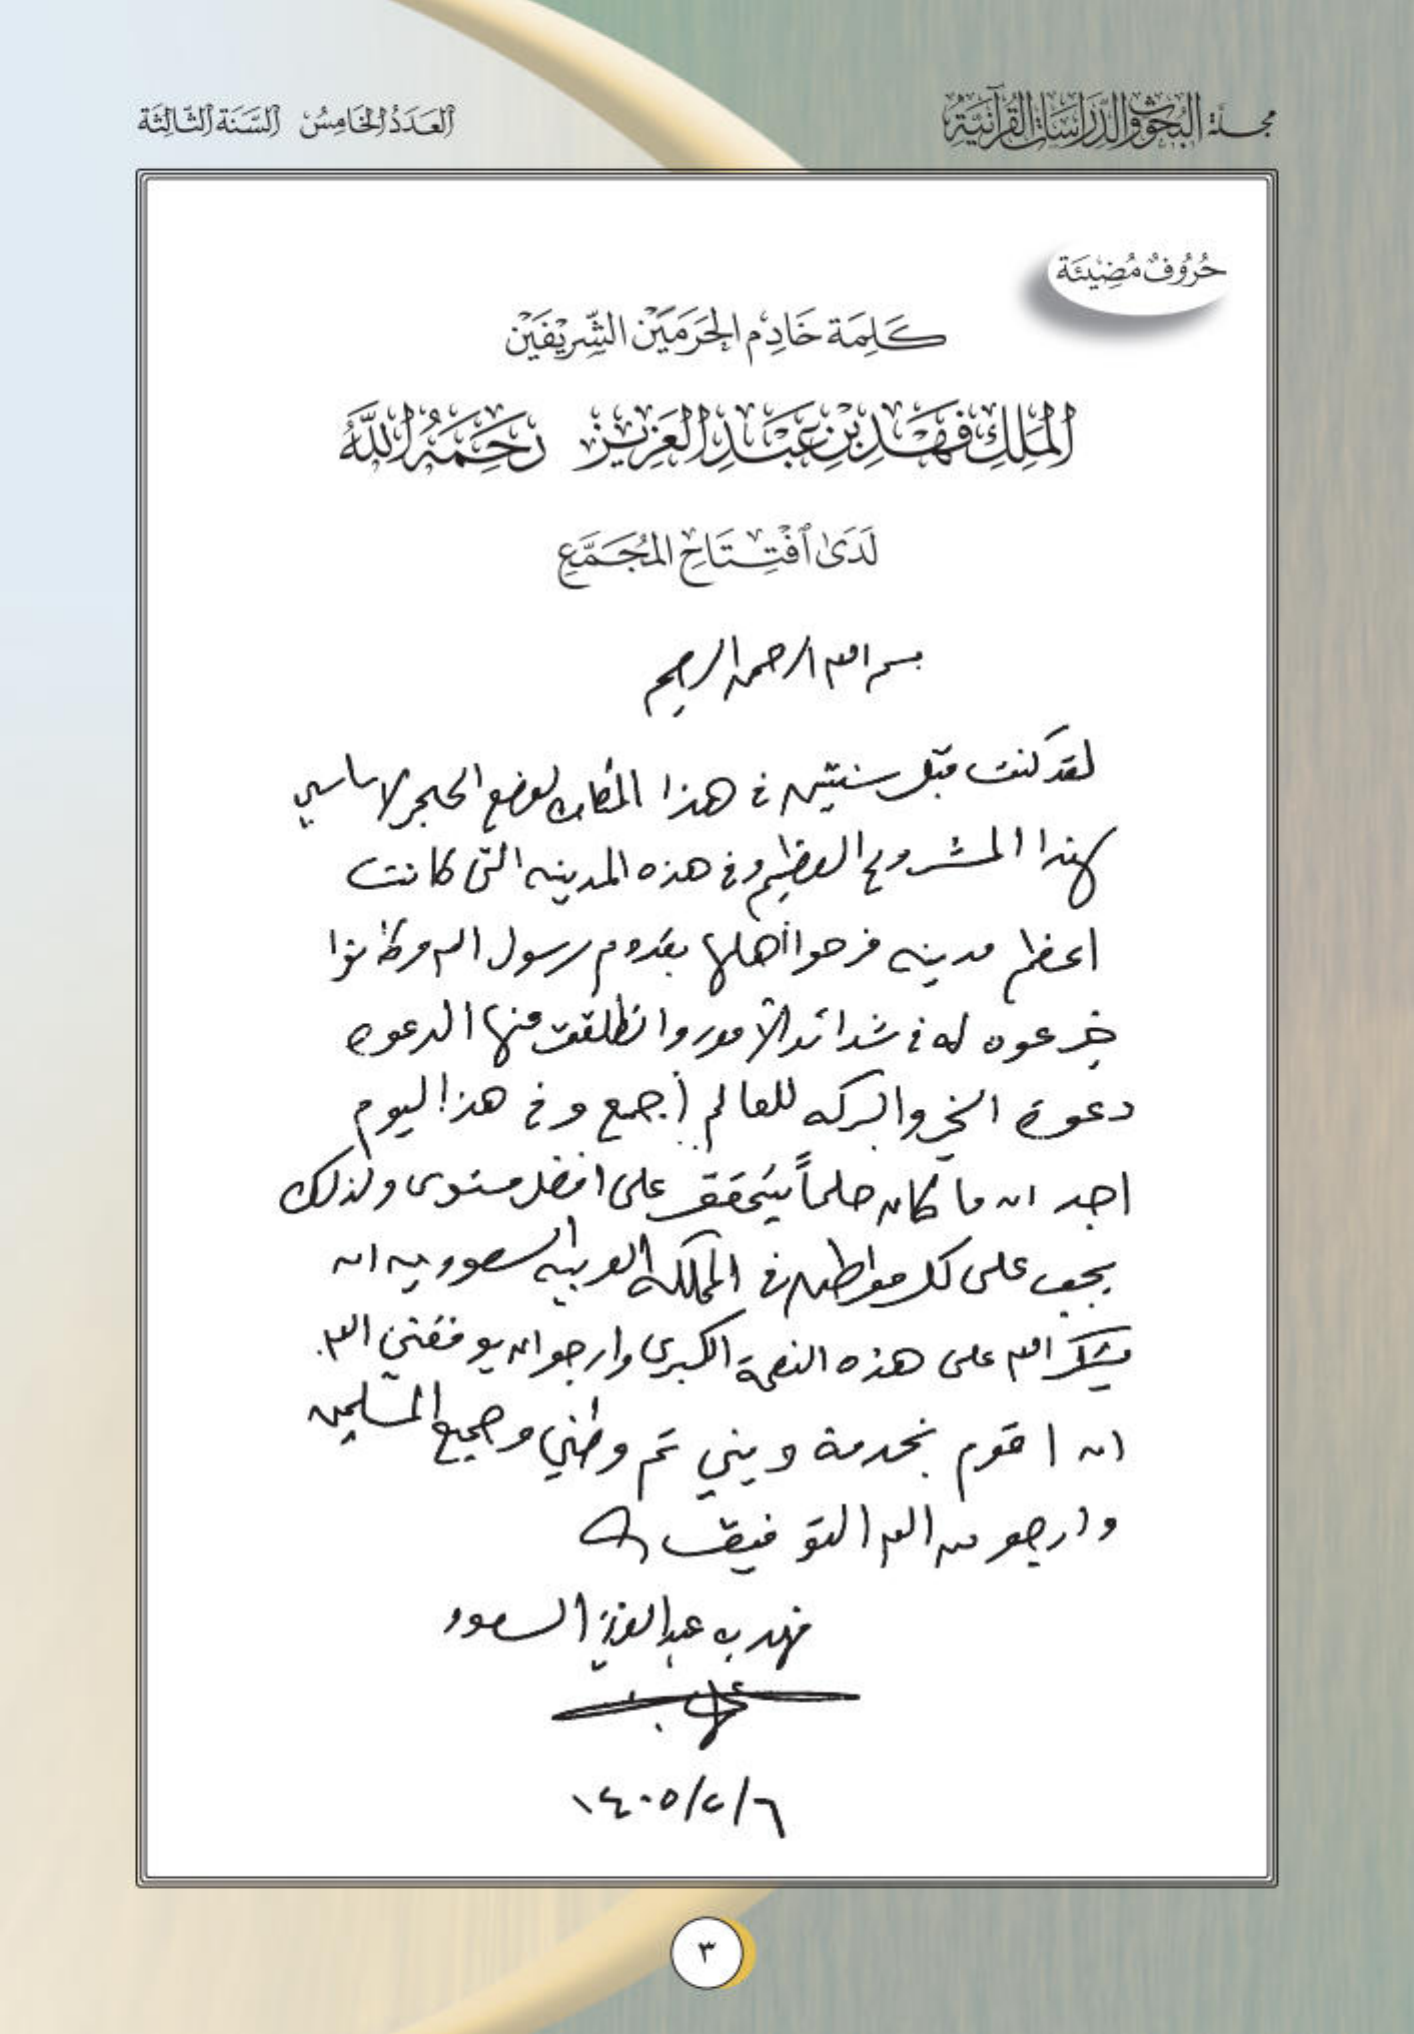 مجلة البحوث والدراسات القرآنية
العَدَدُ الخَامِسُ السَّنَة الثَّالِثَة
حُرُوفٌ مُضِيئَة
كَلِمَة خَادِم الحَرَمَيْن الشَّرِيْفَيْن
المَلِكِ فَهَدِ بْنِ عَبْدِ العَزِيزِ رَحِمَهُ اللَّهُ
لَدَىٰ ٱفْتِتَاحِ المُجَمَّعِ
بسم الله الرحمن الرحيم
لقد كنت قبل سنتين في هذا المكان لوضع الحجر الاساسي
لهذا المشروع العظيم وفي هذه المدينه التي كانت
اعظم مدينه فرحوا أهلها بقدوم رسول الله وكانوا
خير عون له في شدائد الأمور وانطلقت منها الدعوه
دعوة الخير والبركه للعالم أجمع وفي هذا اليوم
اجد ان ما كان حلماً يتحقق على افضل مستوى ولذلك
يجب على كل مواطن في المملكه العربيه السعوديه ان
يشكر الله على هذه النعمة الكبرى وارجو ان يوفقني الله
ان اقوم بخدمة ديني ثم وطني وجميع المسلمين
وارجو من الله التوفيق
فهد بن عبدالعزيز السعود
١٤٠٥/٢/٦
٣